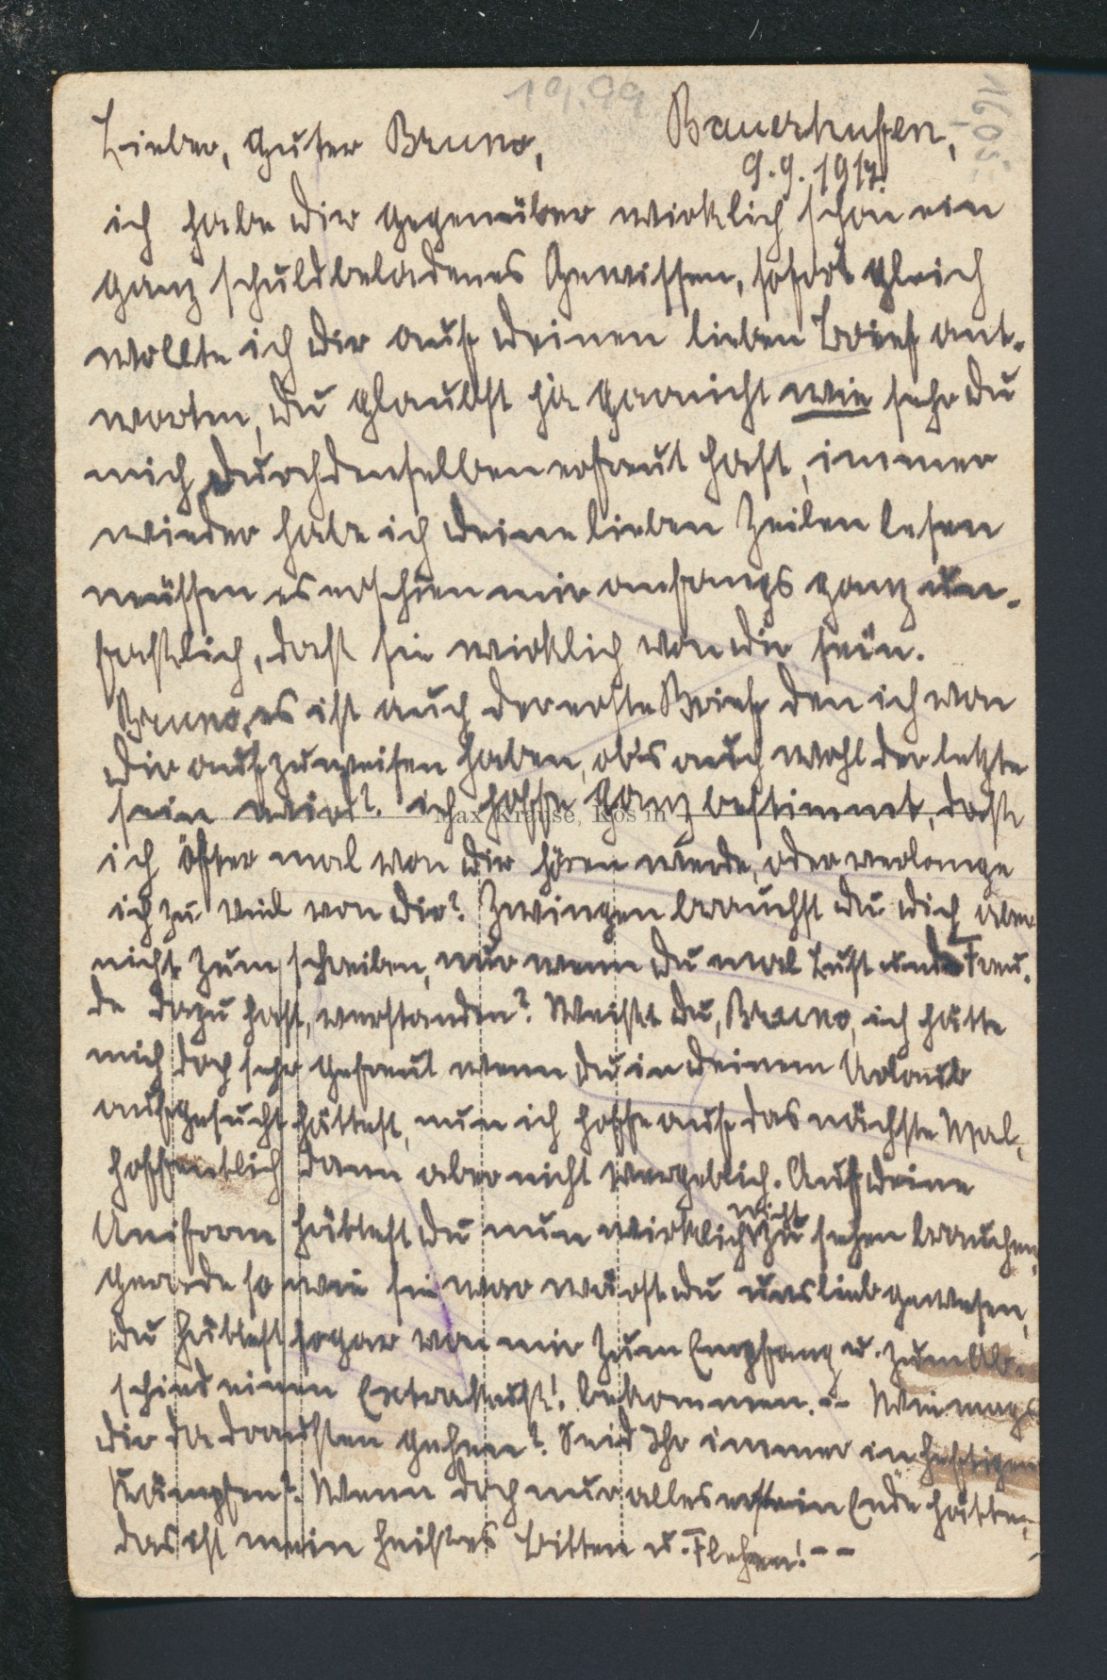 19.99
1605
Bauerhufen,
Lieber, guter Bruno,
9.9.1917.
ich habe dir gegenüber wirklich schon ein
ganz schuldbeladenes Gewissen, sofort gleich
wollte ich dir auf deinen lieben Brief ant-
worten, du glaubst ja garnicht wie sehr du
mich durch denselben erfreut hast, immer
wieder habe ich deine lieben Zeilen lesen
müssen es erschien mir anfangs ganz un-
fasslich, dass sie wirklich von dir sein.
Bruno, es ist auch der erste Brief den ich von
dir aufzuweisen haben, ob's auch wohl der letzte
sein wird? ich hoffe ganz bestimmt, dass
Max Krause, Kös in
ich öfter mal von dir hören werde, oder verlange
ich zu viel von dir? Zwingen brauchst du dich aber
nicht zum schreiben, nur wenn du mal Lust und Freu-
de dazu hast, verstanden? Weisst du, Bruno, ich hätte
mich doch sehr gefreut wenn du in deinem Urlaub
aufgesucht hättest, nun ich hoffe auf das nächste Mal,
hoffentlich dann aber nicht vergeblich. Auf deine
Uniform hättest du nun wirklich nicht zu sehen brauchen,
gerade so wie sie war wärst du uns lieb gewesen,
du hättest sogar von mir zum Empfang u. zum Ab-
schied einen Extrakuß! bekommen. -- Wie mags
dir da draussen gehen? Seid Ihr immer in heftigen
Kämpfen? Wenn doch nur alles erst ein Ende hätte,
das ist mein heisses Bitten u. Flehen! --